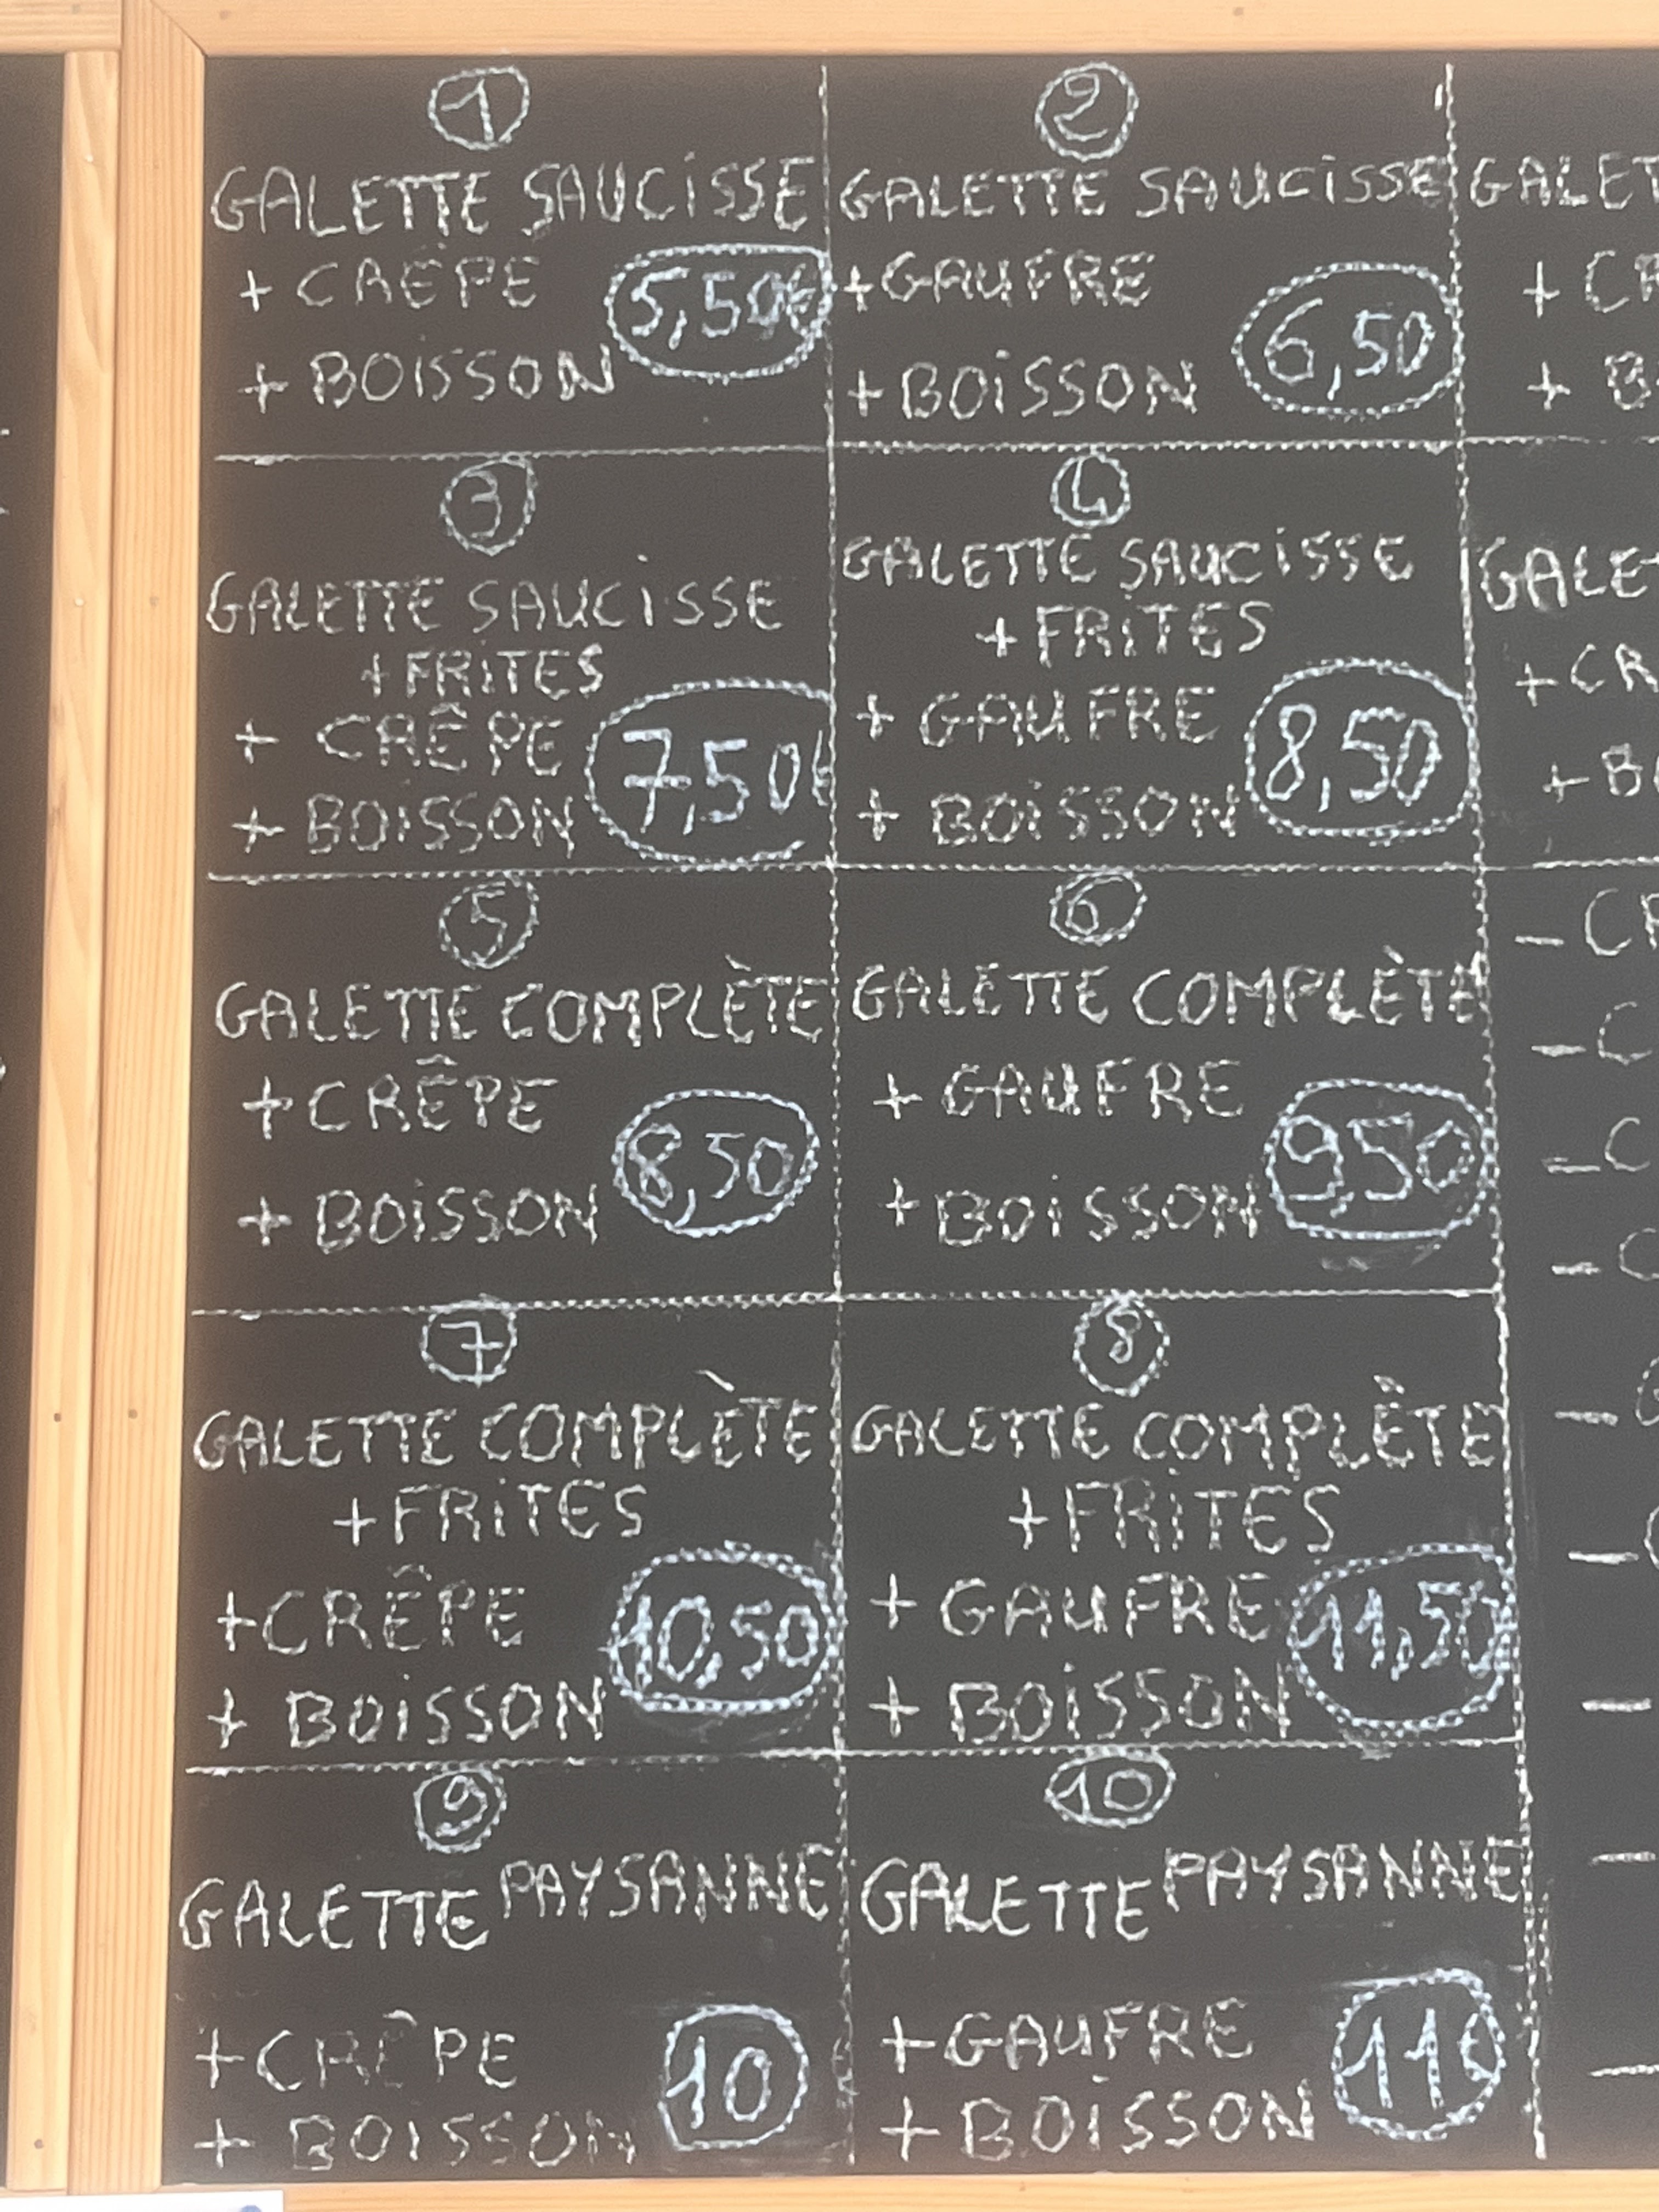 1
GALETTE SAUCISSE
+ CRÊPE 5,50€
+ BOISSON
2
GALETTE SAUCISSE
+ GAUFRE
+ BOISSON 6,50
3
GALETTE SAUCISSE
+ FRITES
+ CRÊPE 7,50€
+ BOISSON
4
GALETTE SAUCISSE
+ FRITES
+ GAUFRE 8,50
+ BOISSON
5
GALETTE COMPLÈTE
+ CRÊPE
+ BOISSON 8,50
6
GALETTE COMPLÈTE
+ GAUFRE
+ BOISSON 9,50
7
GALETTE COMPLÈTE
+ FRITES
+ CRÊPE 10,50
+ BOISSON
8
GALETTE COMPLÈTE
+ FRITES
+ GAUFRE 11,50
+ BOISSON
9
GALETTE PAYSANNE
+ CRÊPE 10
+ BOISSON
10
GALETTE PAYSANNE
+ GAUFRE 11€
+ BOISSON